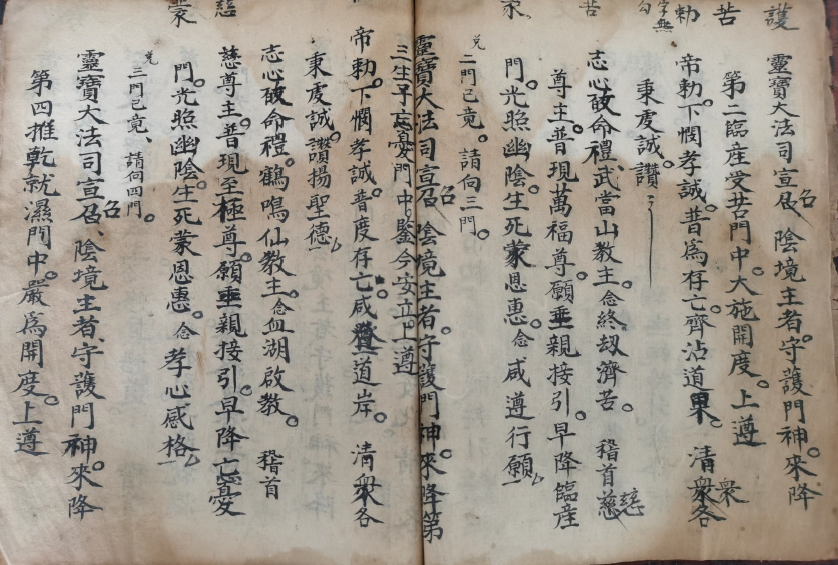 護
苦
勅
字無
勾
苦
靈寶大法司宣召召、陰境主者。守護門神。來降
第二臨產受苦門中。大施開度。上遵
帝勅。下憫孝誠。普為存亡。齊沾道果。清眾眾各
秉虔誠。讚
志心皈命禮。武當山教主。念終劫濟苦。稽首慈慈
尊主。普現萬福尊。願垂親接引。早降臨產
門。光照幽陰。生死蒙恩惠。念咸遵行願
兌二門已竟。請向三門。
靈寶大法司宣召召陰境主者。守護門神。來降第
三生子忘憂門中。鑒今安立。上遵
帝勅。下憫孝誠。普度存亡。咸登道岸。清眾各
秉虔誠。讚揚聖德
志心皈命禮。鶴鳴仙教主。念血湖啟教。稽首
慈尊主。普現至極尊。願垂親接引。早降忘憂
門。光照幽陰。生死蒙恩惠。念孝心感格
兌三門已竟、請向四門。
靈寶大法司宣召召、陰境主者、守護門神。來降
第四推乾就濕門中。嚴為開度。上遵